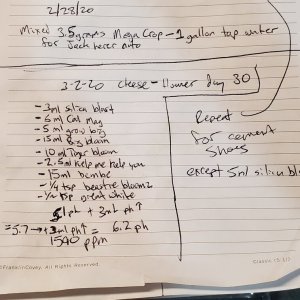 2/28/20
Mixed 3.5 grams Mega Crop - 1 gallon tap water
for Jack herer auto
3-2-20 cheese - flower day 30
- 3ml silica blast
- 6 ml Cal Mag
- 5 ml grow big
- 15ml Big bloom
- 10 ml Tiger bloom
- 2.5ml
- 15ml bembe
- 1/4 tsp beastie bloomz
- great white
5.1 ph + 3ml ph↑
= 5.7 → +3ml ph↑ = 6.2 ph
1540 ppm
Repeat
for cement
shoes
except 5ml silica bla
FranklinCovey. All Rights Reserved.